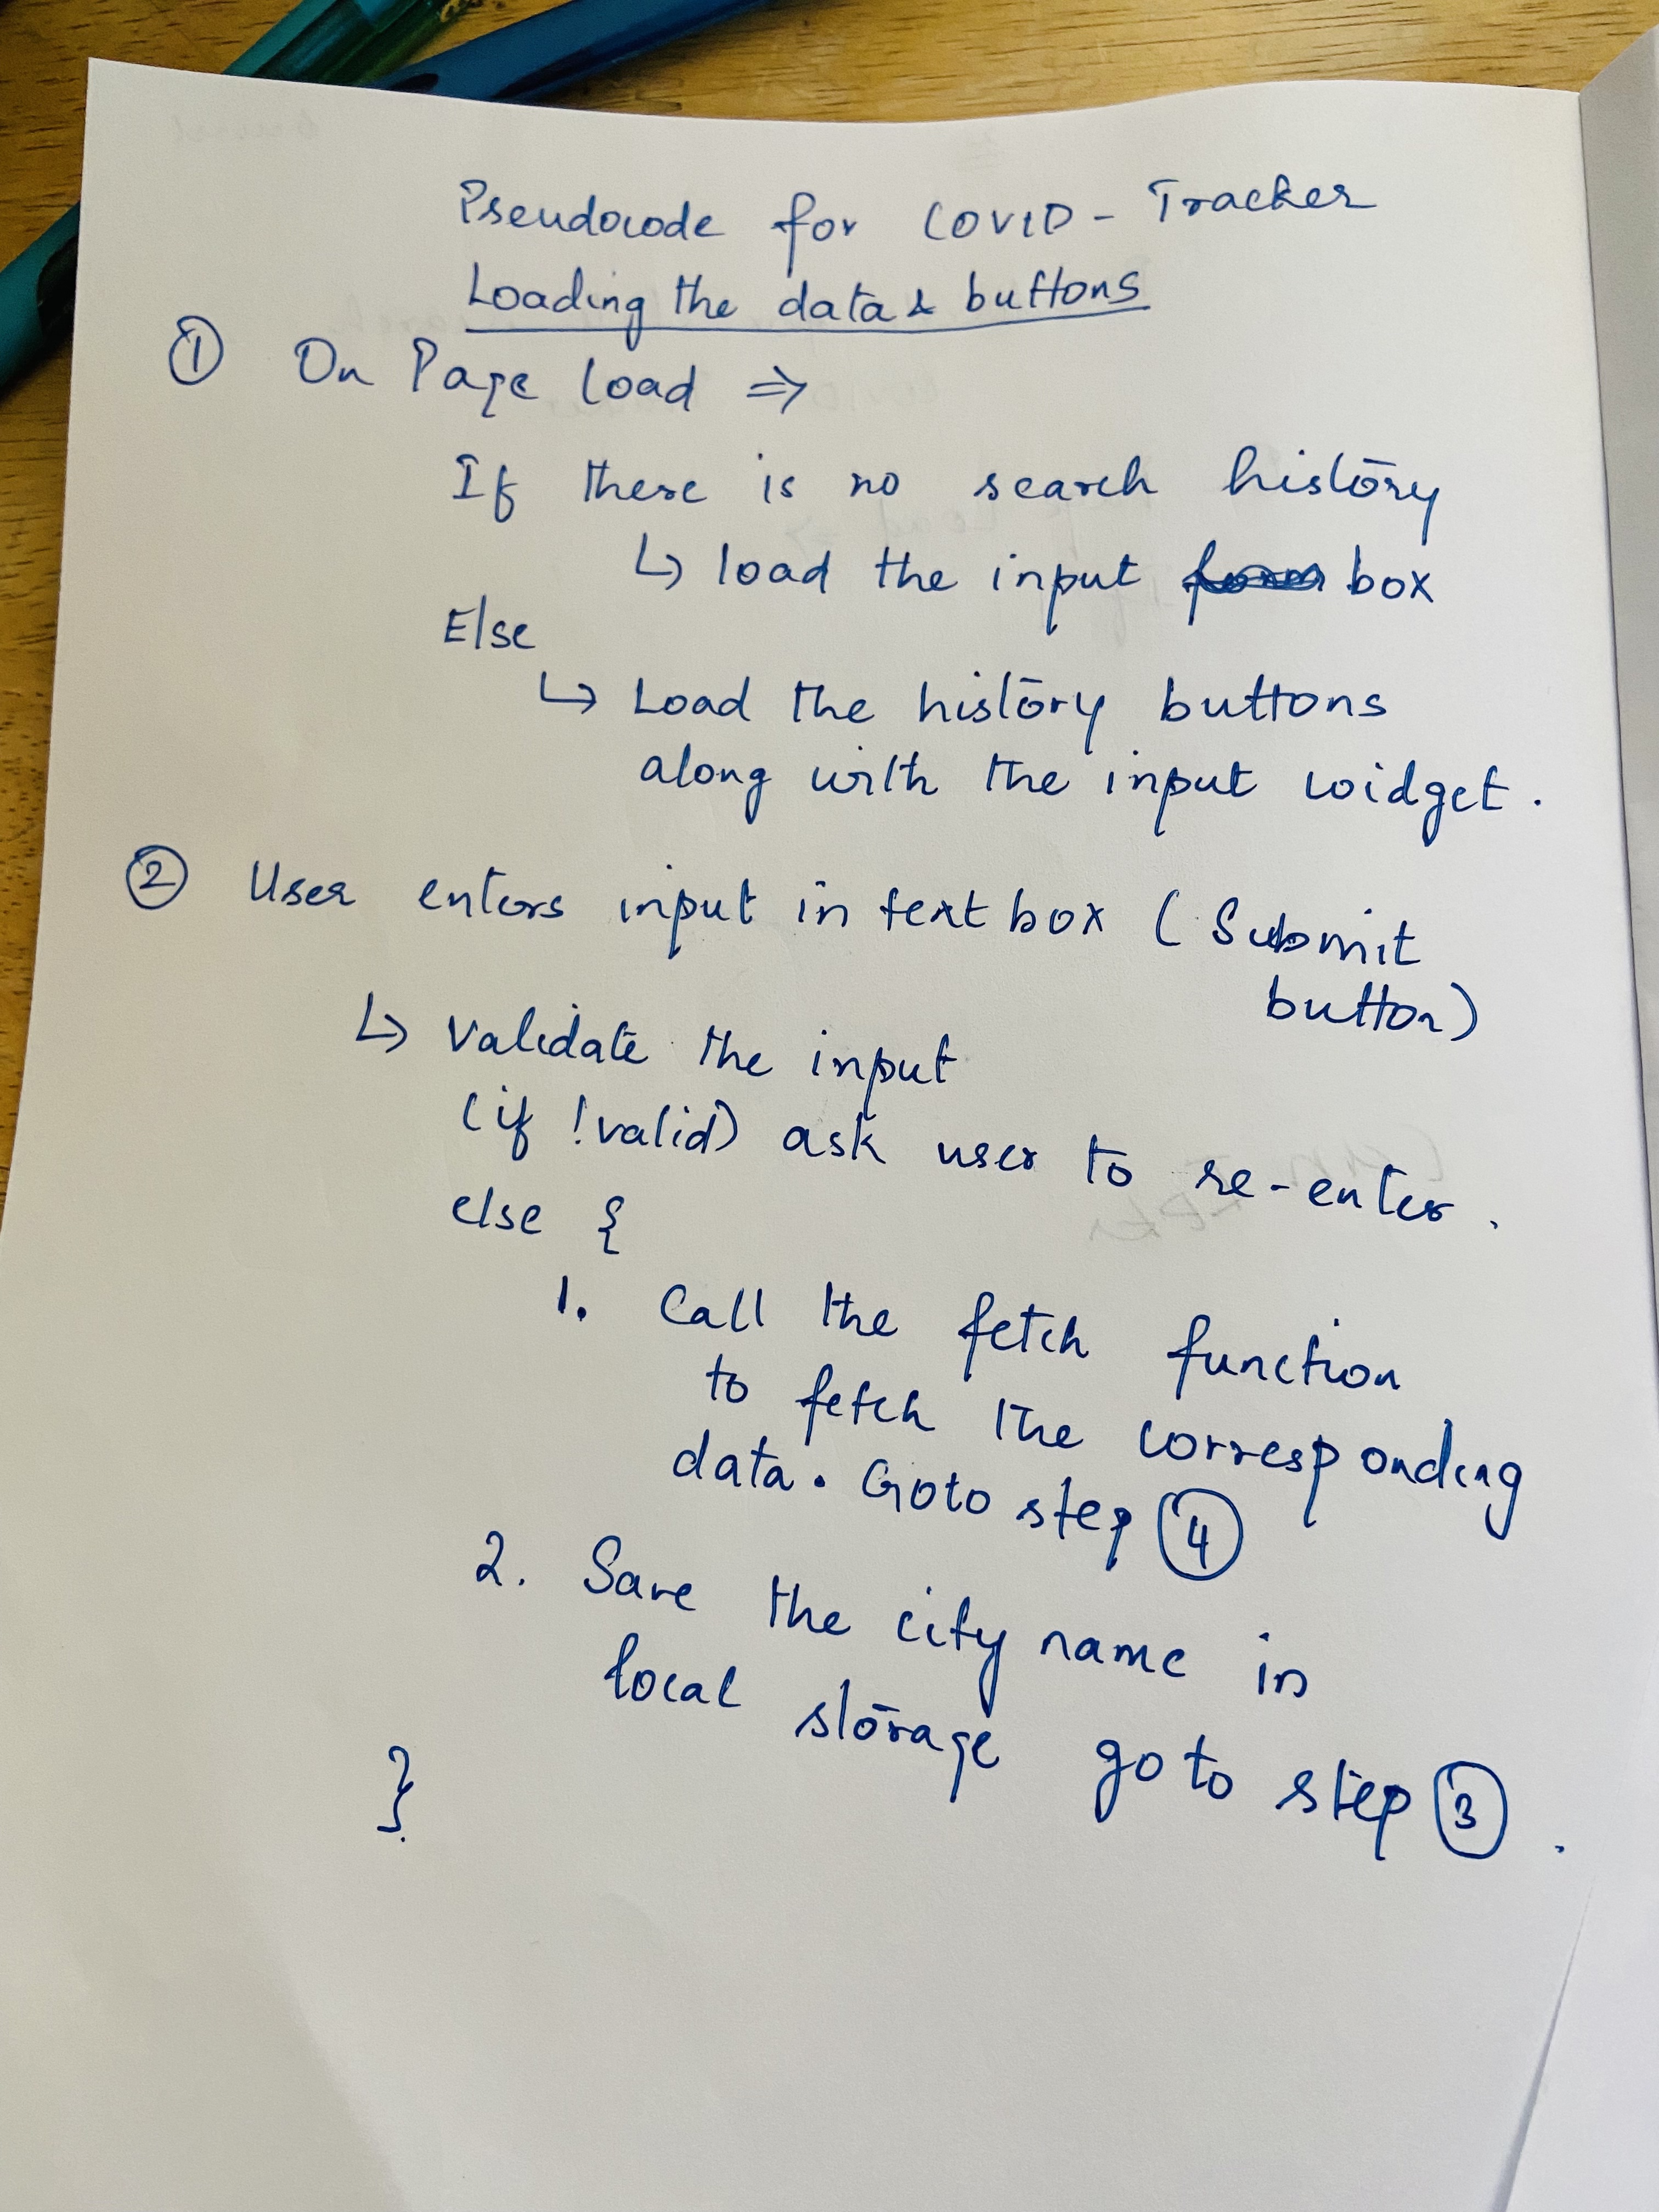 Pseudocode for COVID - Tracker
Loading the data & buttons
① On Page load ⇒
If there is no search history
↳ load the input box
Else
↳ Load the history buttons
along with the input widget.
② User enters input in text box (Submit
button)
↳ Validate the input
(if !valid) ask user to re-enter.
else {
1. Call the fetch function
to fetch the corresponding
data. Goto step ④
2. Save the city name in
local storage go to step ③.
}